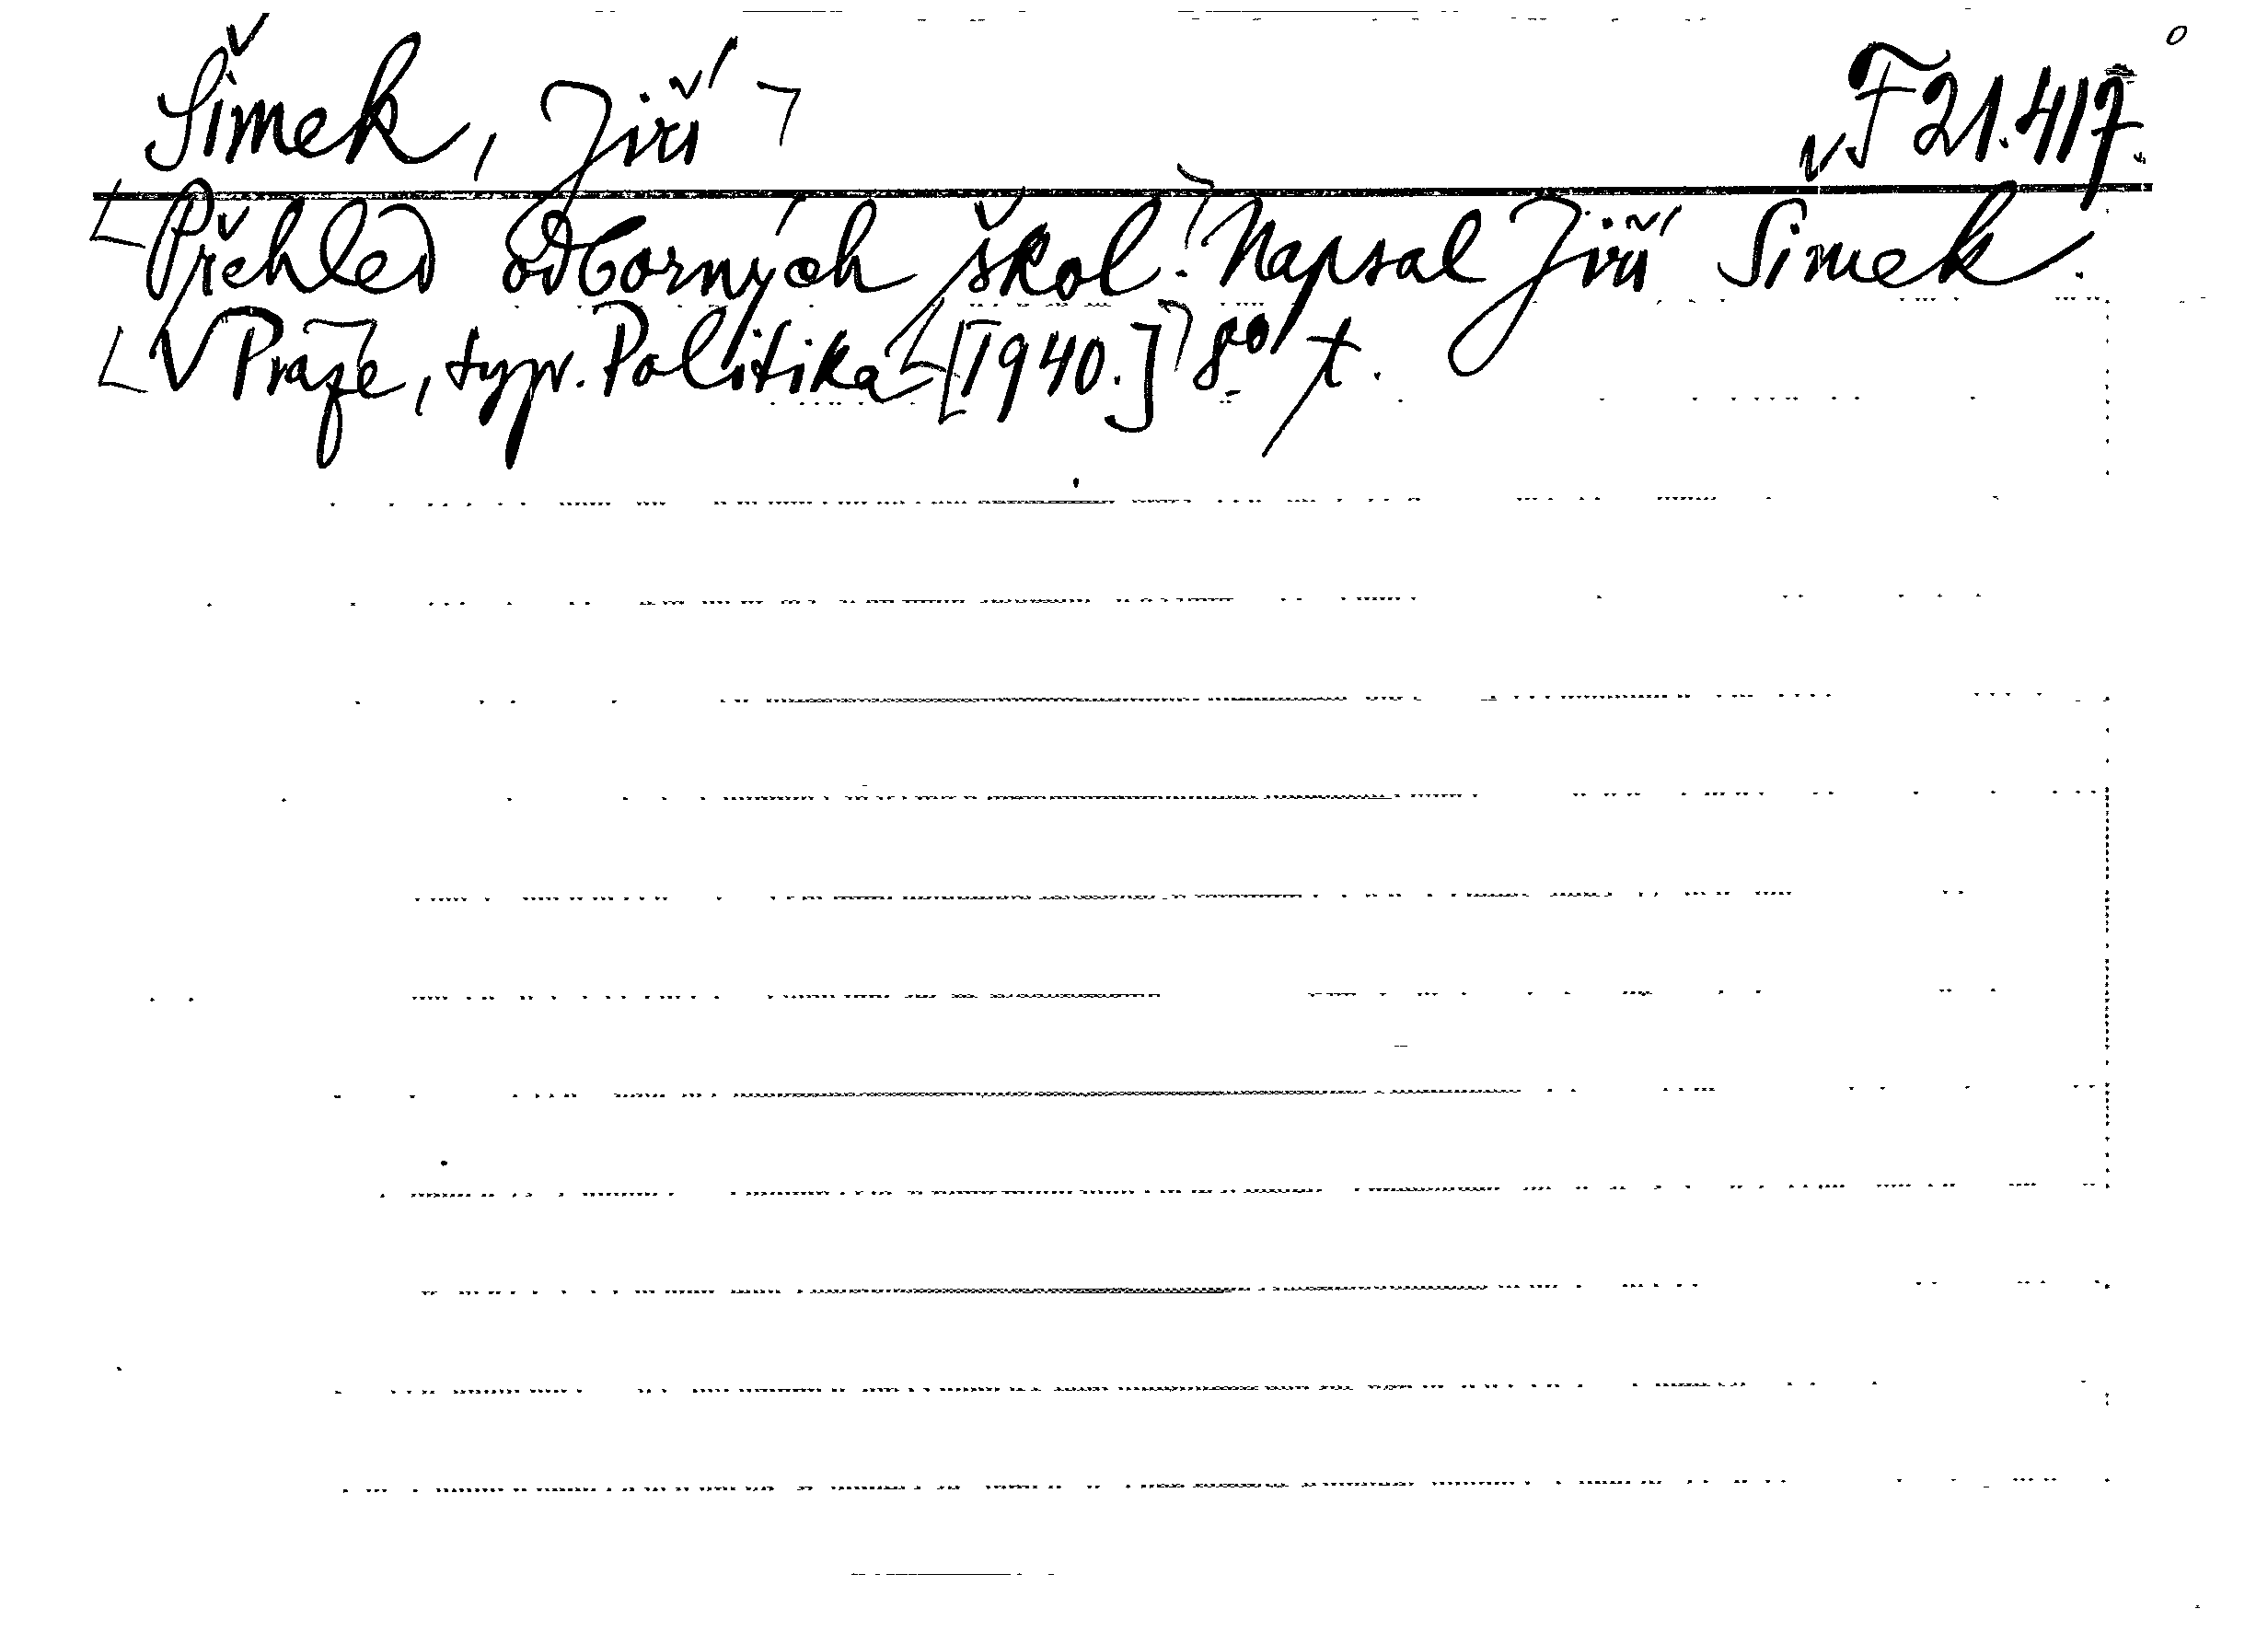 Šimek, Jiří F 21.417.
Přehled odborných škol. Napsal Jiří Šimek.
V Praze, typ. Politika [1940.] 8° t.